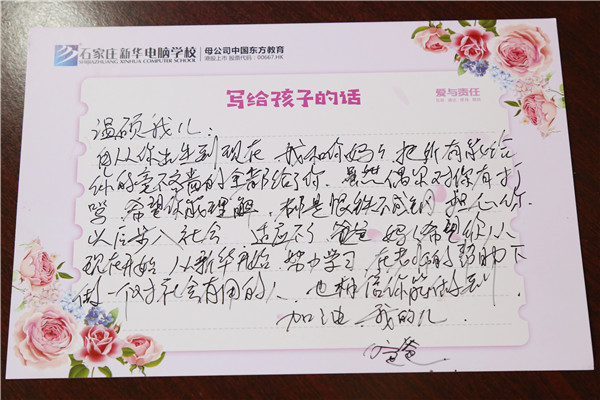 石家庄新华电脑学校
SHIJIAZHUANG XINHUA COMPUTER SCHOOL
母公司中国东方教育
港股上市 股票代码：00667.HK
写给孩子的话
爱与责任
温硕我儿：
自从你出生到现在 我和你妈妈 把所有能给
你的毫不吝啬的全部给了你 虽然偶尔对你有打
骂 希望你能理解 都是恨铁不成钢 担心你
以后步入社会 适应不了 爸爸妈妈希望你从
现在开始 从新华开始 努力学习 在老师的帮助下
做一个对社会有用的人 也相信你能做到
加油 我的儿
爸爸